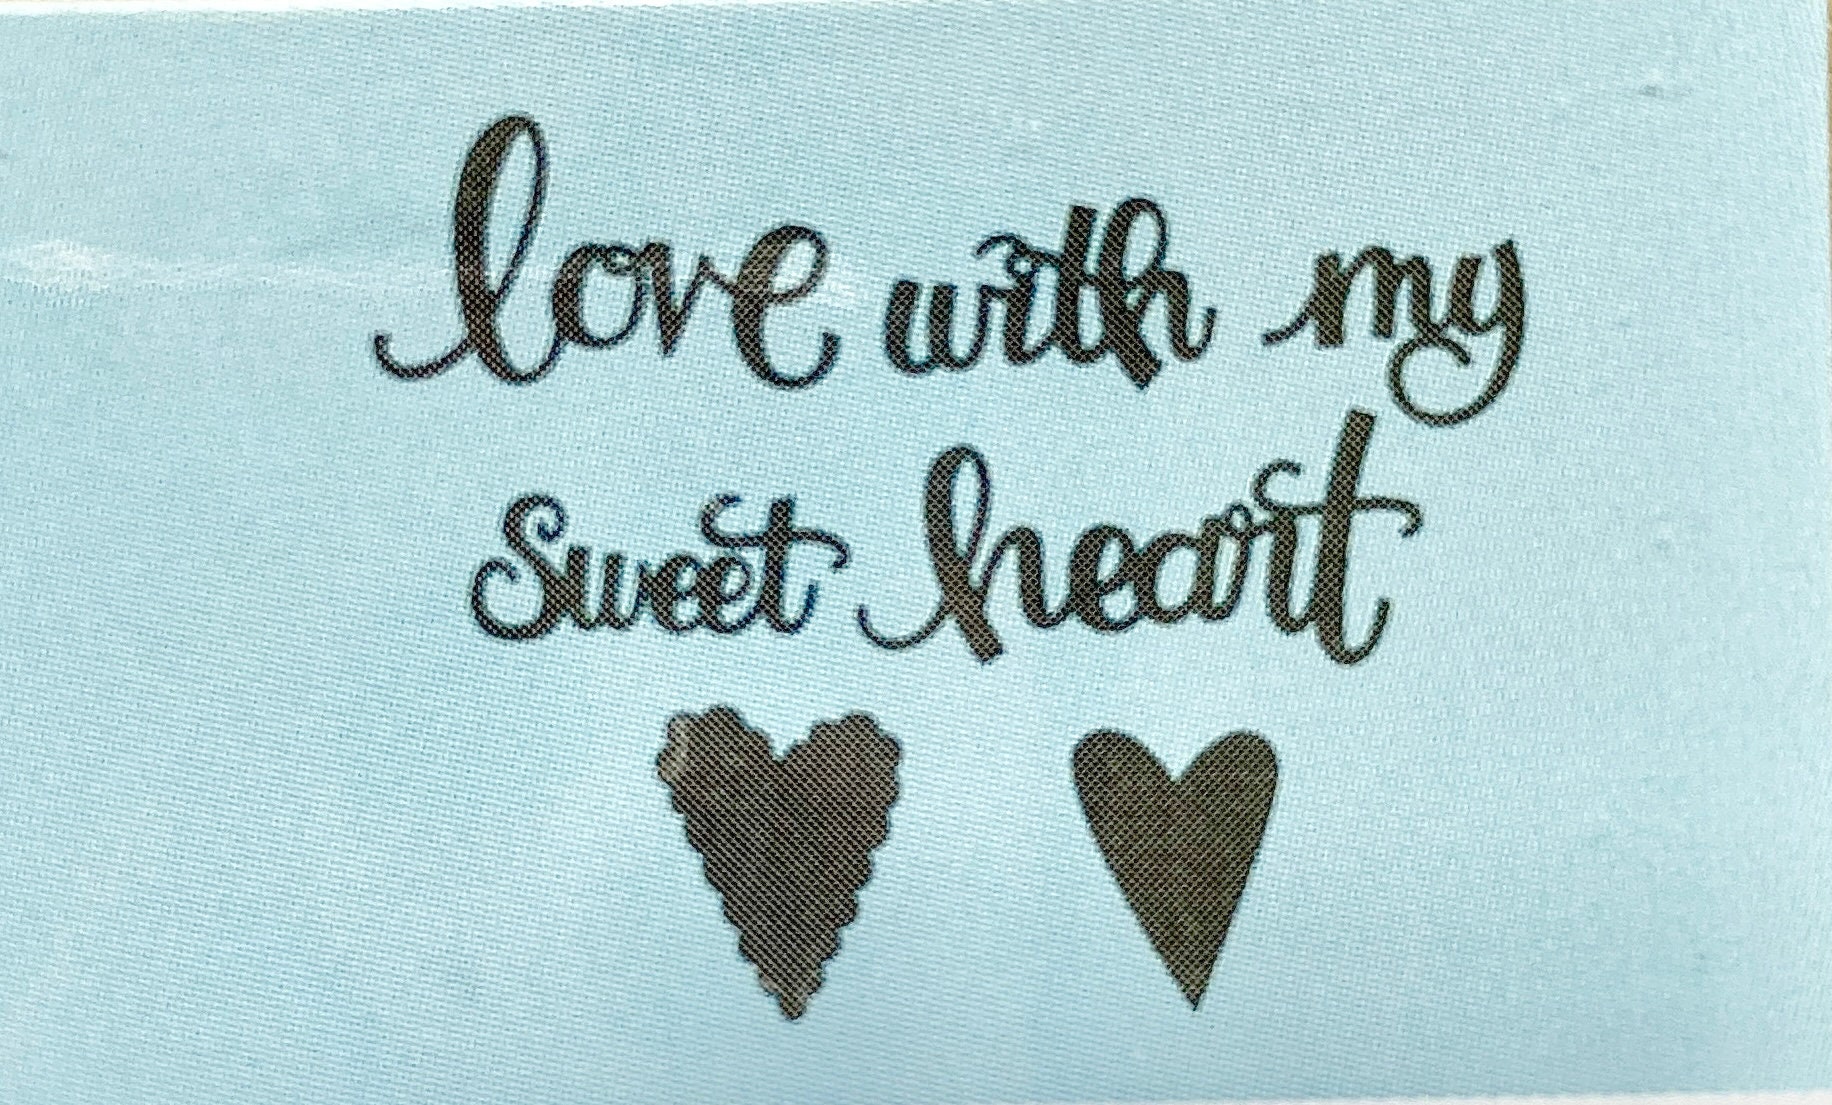 love with my
sweet heart